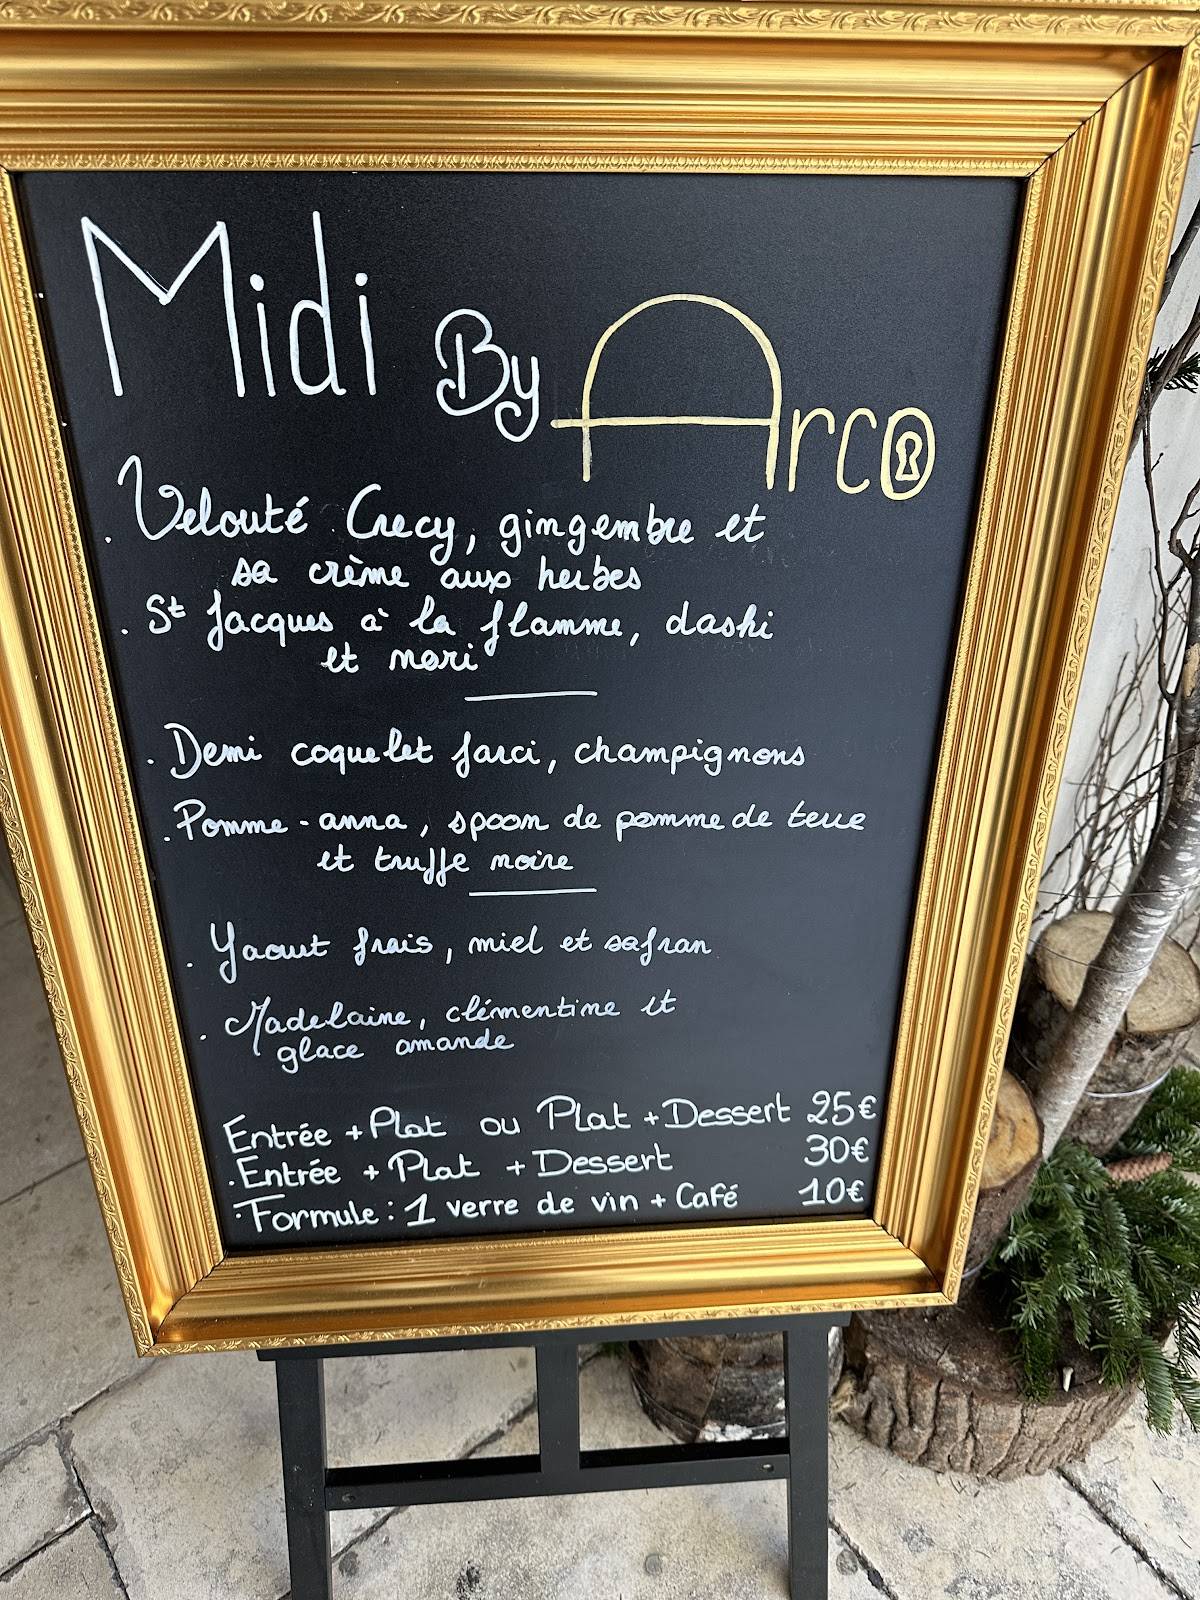 Midi By Arco
. Velouté Crecy, gingembre et
sa crème aux herbes
. St Jacques à la flamme, dashi
et nori
. Demi coquelet farci, champignons
. Pomme-anna, spoom de pomme de terre
et truffe noire
. Yaourt frais, miel et safran
. Madelaine, clémentine et
glace amande
Entrée + Plat ou Plat + Dessert 25€
. Entrée + Plat + Dessert 30€
. Formule : 1 verre de vin + Café 10€